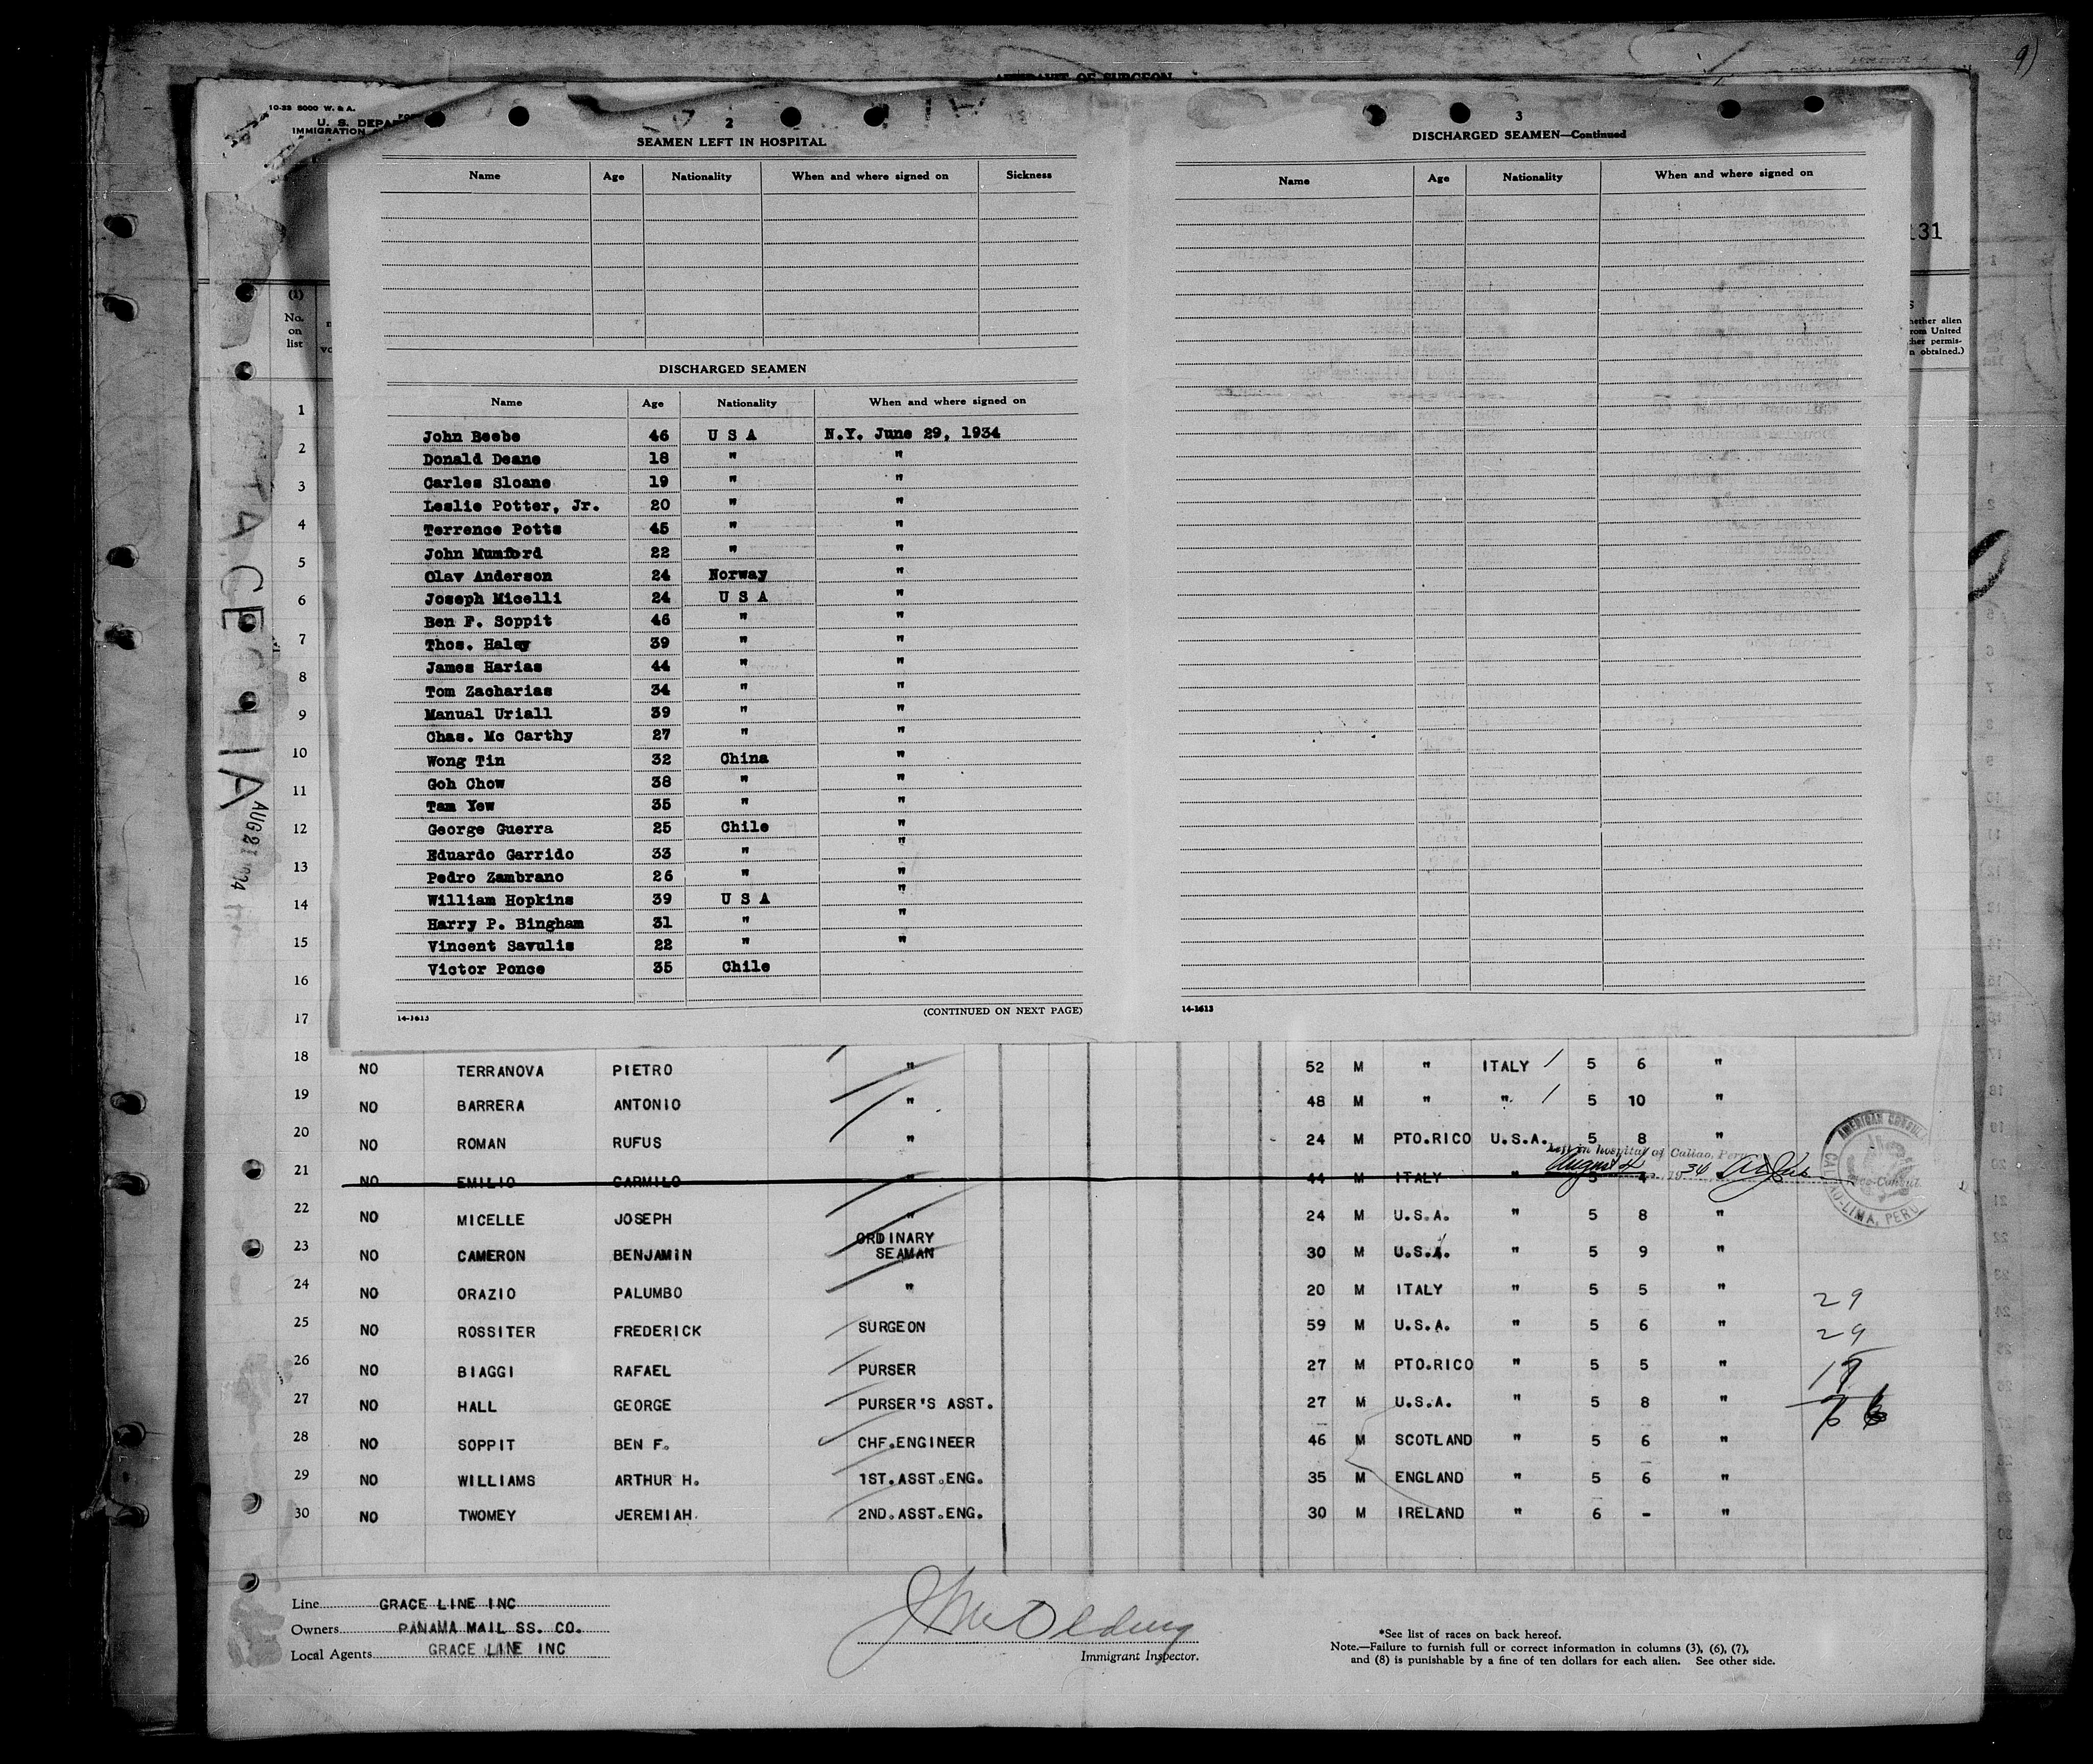 9)
AFFIDAVIT OF SURGEON
10-33 5000 W. & A.
U. S. DEPAR
IMMIGRATION
131
(1)
No. on list
hether alien
rom United
ther permis-
n obtained.)
2
SEAMEN LEFT IN HOSPITAL
Name Age Nationality When and where signed on Sickness
DISCHARGED SEAMEN
Name Age Nationality When and where signed on
John Beebe 46 U S A N.Y. June 29, 1934
Donald Deane 18 " "
Carles Sloane 19 " "
Leslie Potter, Jr. 20 " "
Terrence Potts 45 " "
John Mumford 22 " "
Olav Anderson 24 Norway "
Joseph Micelli 24 U S A "
Ben F. Soppit 46 " "
Thos. Haley 39 " "
James Harias 44 " "
Tom Zacharias 34 " "
Manual Uriall 39 " "
Chas. Mc Carthy 27 " "
Wong Tin 32 China "
Goh Chow 38 " "
Tam Yew 35 " "
George Guerra 25 Chile "
Eduardo Garrido 33 " "
Pedro Zambrano 26 " "
William Hopkins 39 U S A "
Harry P. Bingham 31 " "
Vincent Savulis 22 " "
Victor Ponce 35 Chile
14-1613 (CONTINUED ON NEXT PAGE)
3
DISCHARGED SEAMEN—Continued
Name Age Nationality When and where signed on
14-1613
1
2
3
4
5
6
7
8
9
10
11
12
13
14
15
16
17
18 NO TERRANOVA PIETRO " 52 M " ITALY 5 6 "
19 NO BARRERA ANTONIO " 48 M " " 5 10 "
20 NO ROMAN RUFUS " 24 M PTO.RICO U.S.A. 5 8 "
Left in hospital at Callao, Peru
August 4 1934
21 NO EMILIO CARMILO " 44 M ITALY " 5 4 "
AMERICAN CONSUL
Vice-Consul.
CALLAO-LIMA, PERU
22 NO MICELLE JOSEPH " 24 M U.S.A. " 5 8 "
23 NO CAMERON BENJAMIN ORDINARY SEAMAN 30 M U.S.A. " 5 9 "
24 NO ORAZIO PALUMBO " 20 M ITALY " 5 5 " 29
25 NO ROSSITER FREDERICK SURGEON 59 M U.S.A. " 5 6 " 29
26 NO BIAGGI RAFAEL PURSER 27 M PTO.RICO " 5 5 "
27 NO HALL GEORGE PURSER'S ASST. 27 M U.S.A. " 5 8 "
28 NO SOPPIT BEN F. CHF.ENGINEER 46 M SCOTLAND " 5 6 "
29 NO WILLIAMS ARTHUR H. 1ST.ASST.ENG. 35 M ENGLAND " 5 6 "
30 NO TWOMEY JEREMIAH. 2ND.ASST.ENG. 30 M IRELAND " 6 - "
Line GRACE LINE INC
Owners PANAMA MAIL SS. CO.
Local Agents GRACE LINE INC
Immigrant Inspector.
*See list of races on back hereof.
Note.—Failure to furnish full or correct information in columns (3), (6), (7),
and (8) is punishable by a fine of ten dollars for each alien. See other side.